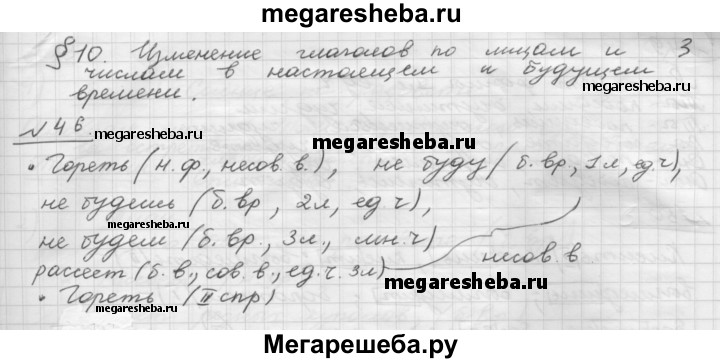 megaresheba.ru
§10. Изменение глаголов по лицам и 3
числам в настоящем и будущем
времени.
№46. megaresheba.ru megaresheba.ru
• Гореть (н.ф., несов.в.), не буду (б.вр., 1л, ед.ч),
не будешь (б.вр, 2л, ед.ч),
megaresheba.ru
не будем (б.вр., 3л., мн.ч)
рассеет (б.в., сов.в., ед.ч. 3л) несов.в.
megaresheba.ru
• Гореть (II спр)
megaresheba.ru
Мегарешеба.ру